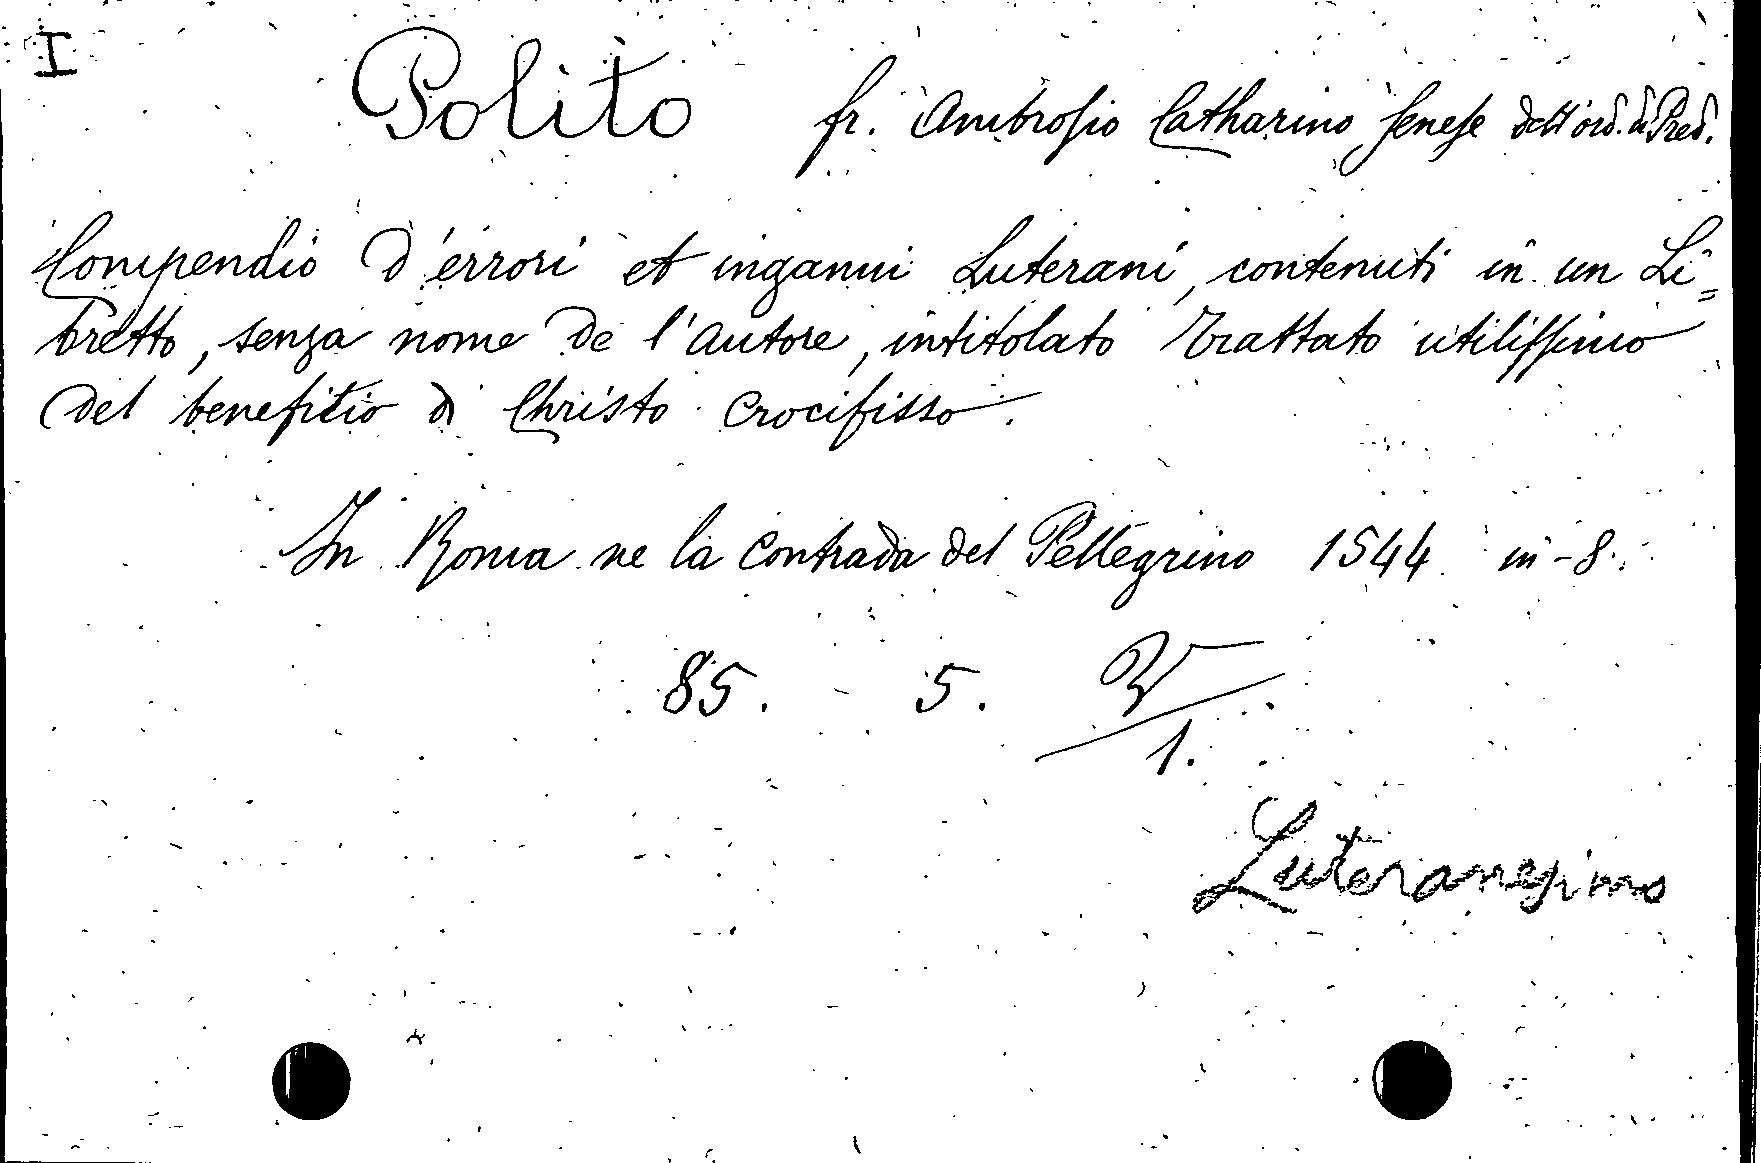 I
Polito fr. Ambrosio Catharino senese dell'ord. di Pred.
Compendio d'errori et inganni Luterani, contenuti in un Li=
bretto, senza nome de l'autore, intitolato Trattato utilissimo
del benefitio di Christo crocifisso.
In Roma ne la contrada del Pellegrino 1544 in-8.
85. - 5.
1.
Luteranesimo